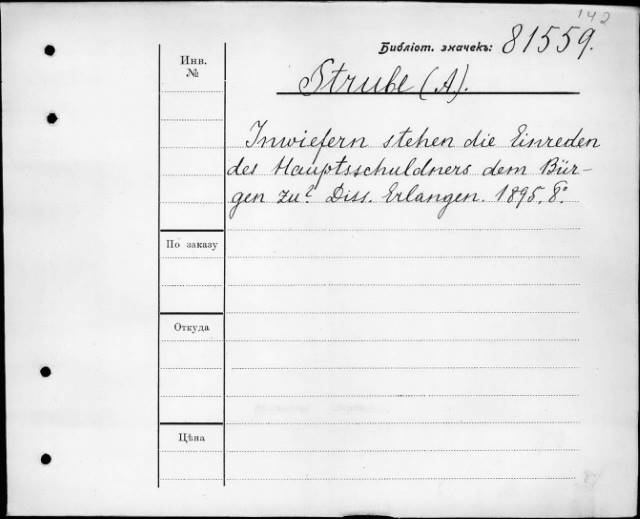 142
Библіот. значекъ: 81559.
Инв.
№
Strube (A).
Inwiefern stehen die Einreden
des Hauptsschuldners dem Bür-
gen zu? Diss. Erlangen. 1895. 8°
По заказу
Откуда
Цѣна